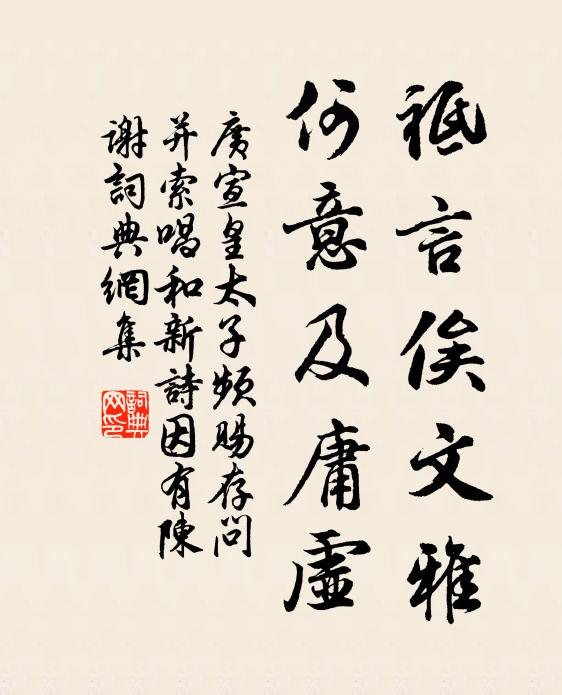 祗言俟文雅
何意及庸虛
廣宣皇太子頻賜存問
并索唱和新詩因有陳
謝詞典網集
詞典網印